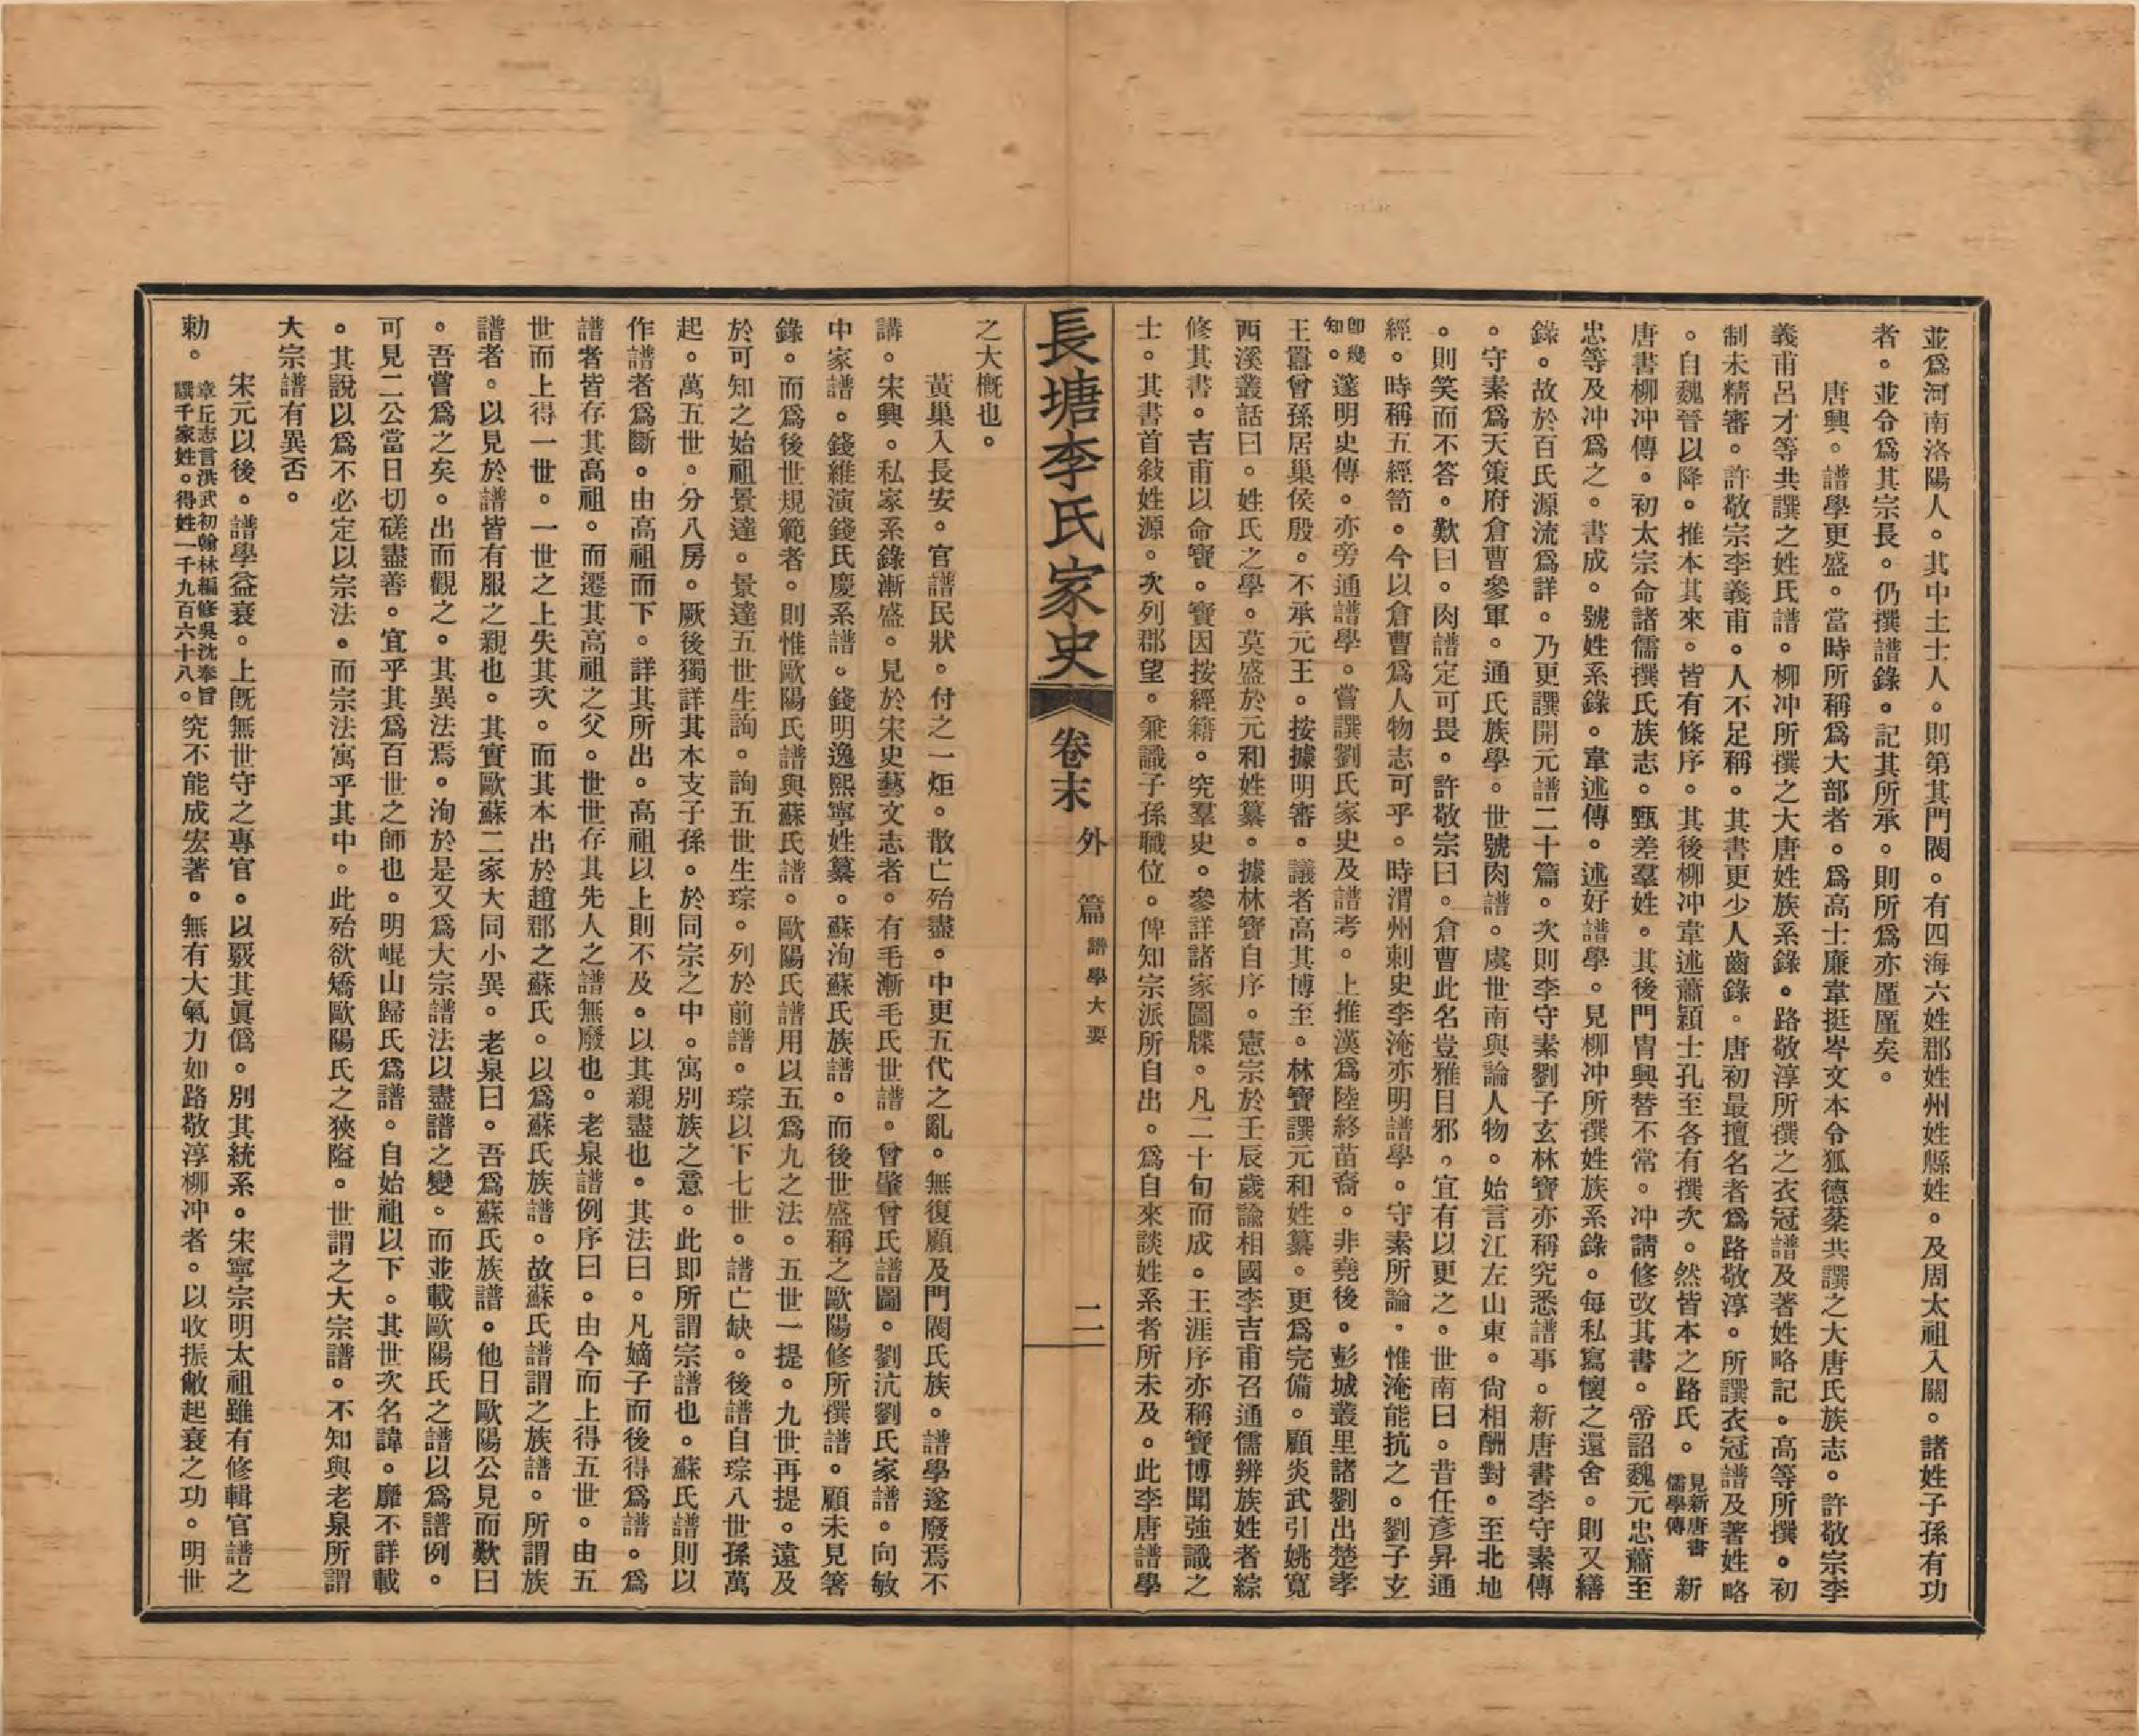 並爲河南洛陽人。其中土士人。則第其門閥。有四海六姓郡姓州姓縣姓。及周太祖入關。諸姓子孫有功
者。並令爲其宗長。仍撰譜錄。記其所承。則所爲亦厪厪矣。
唐興。譜學更盛。當時所稱爲大部者。爲高士廉韋挺岑文本令狐德棻共譔之大唐氏族志。許敬宗李
義甫呂才等共譔之姓氏譜。柳冲所撰之大唐姓族系錄。路敬淳所撰之衣冠譜及著姓略記。高等所撰。初
制未精審。許敬宗李義甫。人不足稱。其書更少人齒錄。唐初最擅名者爲路敬淳。所譔衣冠譜及著姓略
。自魏晉以降。推本其來。皆有條序。其後柳冲韋述蕭穎士孔至各有撰次。然皆本之路氏。見新唐書儒學傳 新
唐書柳冲傳。初太宗命諸儒撰氏族志。甄差羣姓。其後門胄興替不常。冲請修改其書。帝詔魏元忠蕭至
忠等及冲爲之。書成。號姓系錄。韋述傳。述好譜學。見柳冲所撰姓族系錄。每私寫懷之還舍。則又繕
錄。故於百氏源流爲詳。乃更譔開元譜二十篇。次則李守素劉子玄林寶亦稱究悉譜事。新唐書李守素傳
。守素爲天策府倉曹參軍。通氏族學。世號肉譜。虞世南與論人物。始言江左山東。尙相酬對。至北地
。則笑而不答。歎曰。肉譜定可畏。許敬宗曰。倉曹此名豈雅目邪。宜有以更之。世南曰。昔任彥昇通
經。時稱五經笥。今以倉曹爲人物志可乎。時渭州刺史李淹亦明譜學。守素所論。惟淹能抗之。劉子玄
卽幾知。邃明史傳。亦旁通譜學。嘗譔劉氏家史及譜考。上推漢爲陸終苗裔。非堯後。彭城叢里諸劉出楚孝
王囂曾孫居巢侯殷。不承元王。按據明審。議者高其博至。林寶譔元和姓纂。更爲完備。顧炎武引姚寬
西溪叢話曰。姓氏之學。莫盛於元和姓纂。據林寶自序。憲宗於壬辰歲諭相國李吉甫召通儒辨族姓者綜
修其書。吉甫以命寶。寶因按經籍。究羣史。參詳諸家圖牒。凡二十旬而成。王涯序亦稱寶博聞強識之
士。其書首敍姓源。次列郡望。兼識子孫職位。俾知宗派所自出。爲自來談姓系者所未及。此李唐譜學
長塘李氏家史 卷末 外篇 譜學大要 二
之大槪也。
黃巢入長安。官譜民狀。付之一炬。散亡殆盡。中更五代之亂。無復顧及門閥氏族。譜學遂廢焉不
講。宋興。私家系錄漸盛。見於宋史藝文志者。有毛漸毛氏世譜。曾肇曾氏譜圖。劉沆劉氏家譜。向敏
中家譜。錢維演錢氏慶系譜。錢明逸熙寧姓纂。蘇洵蘇氏族譜。而後世盛稱之歐陽修所撰譜。顧未見箸
錄。而爲後世規範者。則惟歐陽氏譜與蘇氏譜。歐陽氏譜用以五爲九之法。五世一提。九世再提。遠及
於可知之始祖景達。景達五世生詢。詢五世生琮。列於前譜。琮以下七世。譜亡缺。後譜自琮八世孫萬
起。萬五世。分八房。厥後獨詳其本支子孫。於同宗之中。寓別族之意。此即所謂宗譜也。蘇氏譜則以
作譜者爲斷。由高祖而下。詳其所出。高祖以上則不及。以其親盡也。其法曰。凡嫡子而後得爲譜。爲
譜者皆存其高祖。而遷其高祖之父。世世存其先人之譜無廢也。老泉譜例序曰。由今而上得五世。由五
世而上得一世。一世之上失其次。而其本出於趙郡之蘇氏。以爲蘇氏族譜。故蘇氏譜謂之族譜。所謂族
譜者。以見於譜皆有服之親也。其實歐蘇二家大同小異。老泉曰。吾爲蘇氏族譜。他日歐陽公見而歎曰
。吾嘗爲之矣。出而觀之。其異法焉。洵於是又爲大宗譜法以盡譜之變。而並載歐陽氏之譜以爲譜例。
可見二公當日切磋盡善。宜乎其爲百世之師也。明崐山歸氏爲譜。自始祖以下。其世次名諱。靡不詳載
。其說以爲不必定以宗法。而宗法寓乎其中。此殆欲矯歐陽氏之狹隘。世謂之大宗譜。不知與老泉所謂
大宗譜有異否。
宋元以後。譜學益衰。上旣無世守之專官。以覈其眞僞。別其統系。宋寧宗明太祖雖有修輯官譜之
勅。章丘志言洪武初翰林編修吳沈奉旨譔千家姓。得姓一千九百六十八。究不能成宏著。無有大氣力如路敬淳柳冲者。以收振敝起衰之功。明世